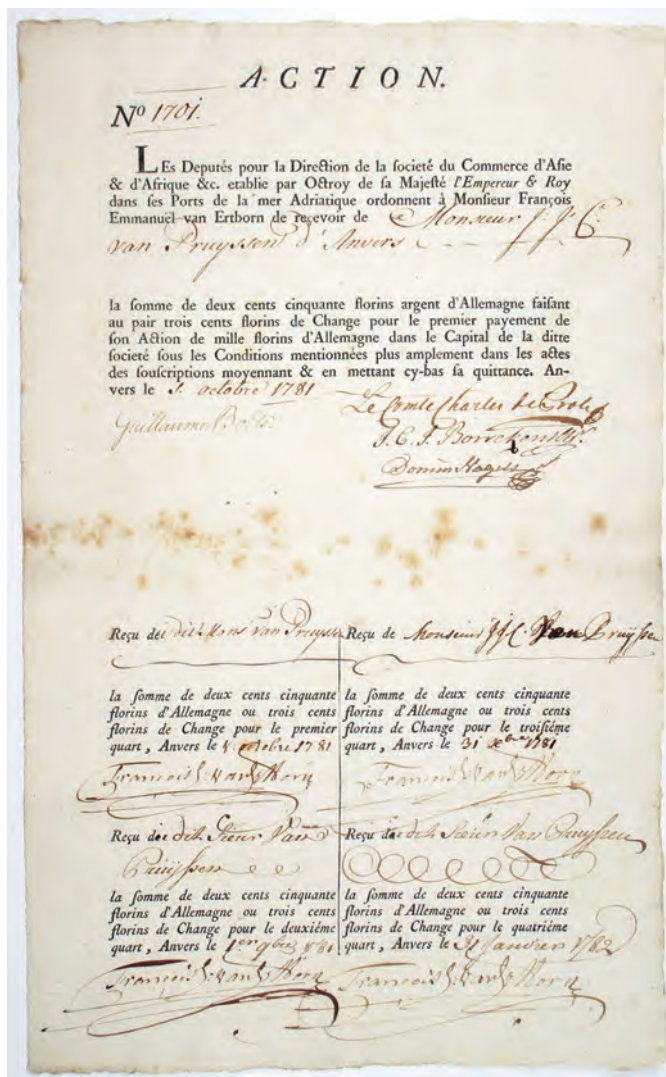 A·CTION.
No 1701.
LEs Deputés pour la Direction de la societé du Commerce d'Asie
& d'Afrique &c. etablie par Octroy de sa Majesté l'Empereur & Roy
dans ses Ports de la mer Adriatique ordonnent à Monsieur François
Emmanuël van Ertborn de reçevoir de Monsieur J. J. C.
van Pruyssen d'Anvers
la somme de deux cents cinquante florins argent d'Allemagne faisant
au pair trois cents florins de Change pour le premier payement de
son Action de mille florins d'Allemagne dans le Capital de la ditte
societé sous les Conditions mentionnées plus amplement dans les actes
des souscriptions moyennant & en mettant cy-bas sa quittance. An-
vers le octobre 1781
Guillaume Bolts
Le Comte Charles de Proli
J. C. J. Borrekens
Reçu de dit Mons van Pruyssen
la somme de deux cents cinquante
florins d'Allemagne ou trois cents
florins de Change pour le premier
quart, Anvers le octobre 1781
Reçu de Monsieur J J C. Van Pruyssen
la somme de deux cents cinquante
florins d'Allemagne ou trois cents
florins de Change pour le troisiéme
quart, Anvers le 31 Xbre 1781
Reçu de dit Sieur Van
Pruyssen
la somme de deux cents cinquante
florins d'Allemagne ou trois cents
florins de Change pour le deuxiéme
quart, Anvers le 1er 9bre 1781
Reçu de dit Sieur Van Pruyssen
la somme de deux cents cinquante
florins d'Allemagne ou trois cents
florins de Change pour le quatriéme
quart, Anvers le 31 Janvier 1782